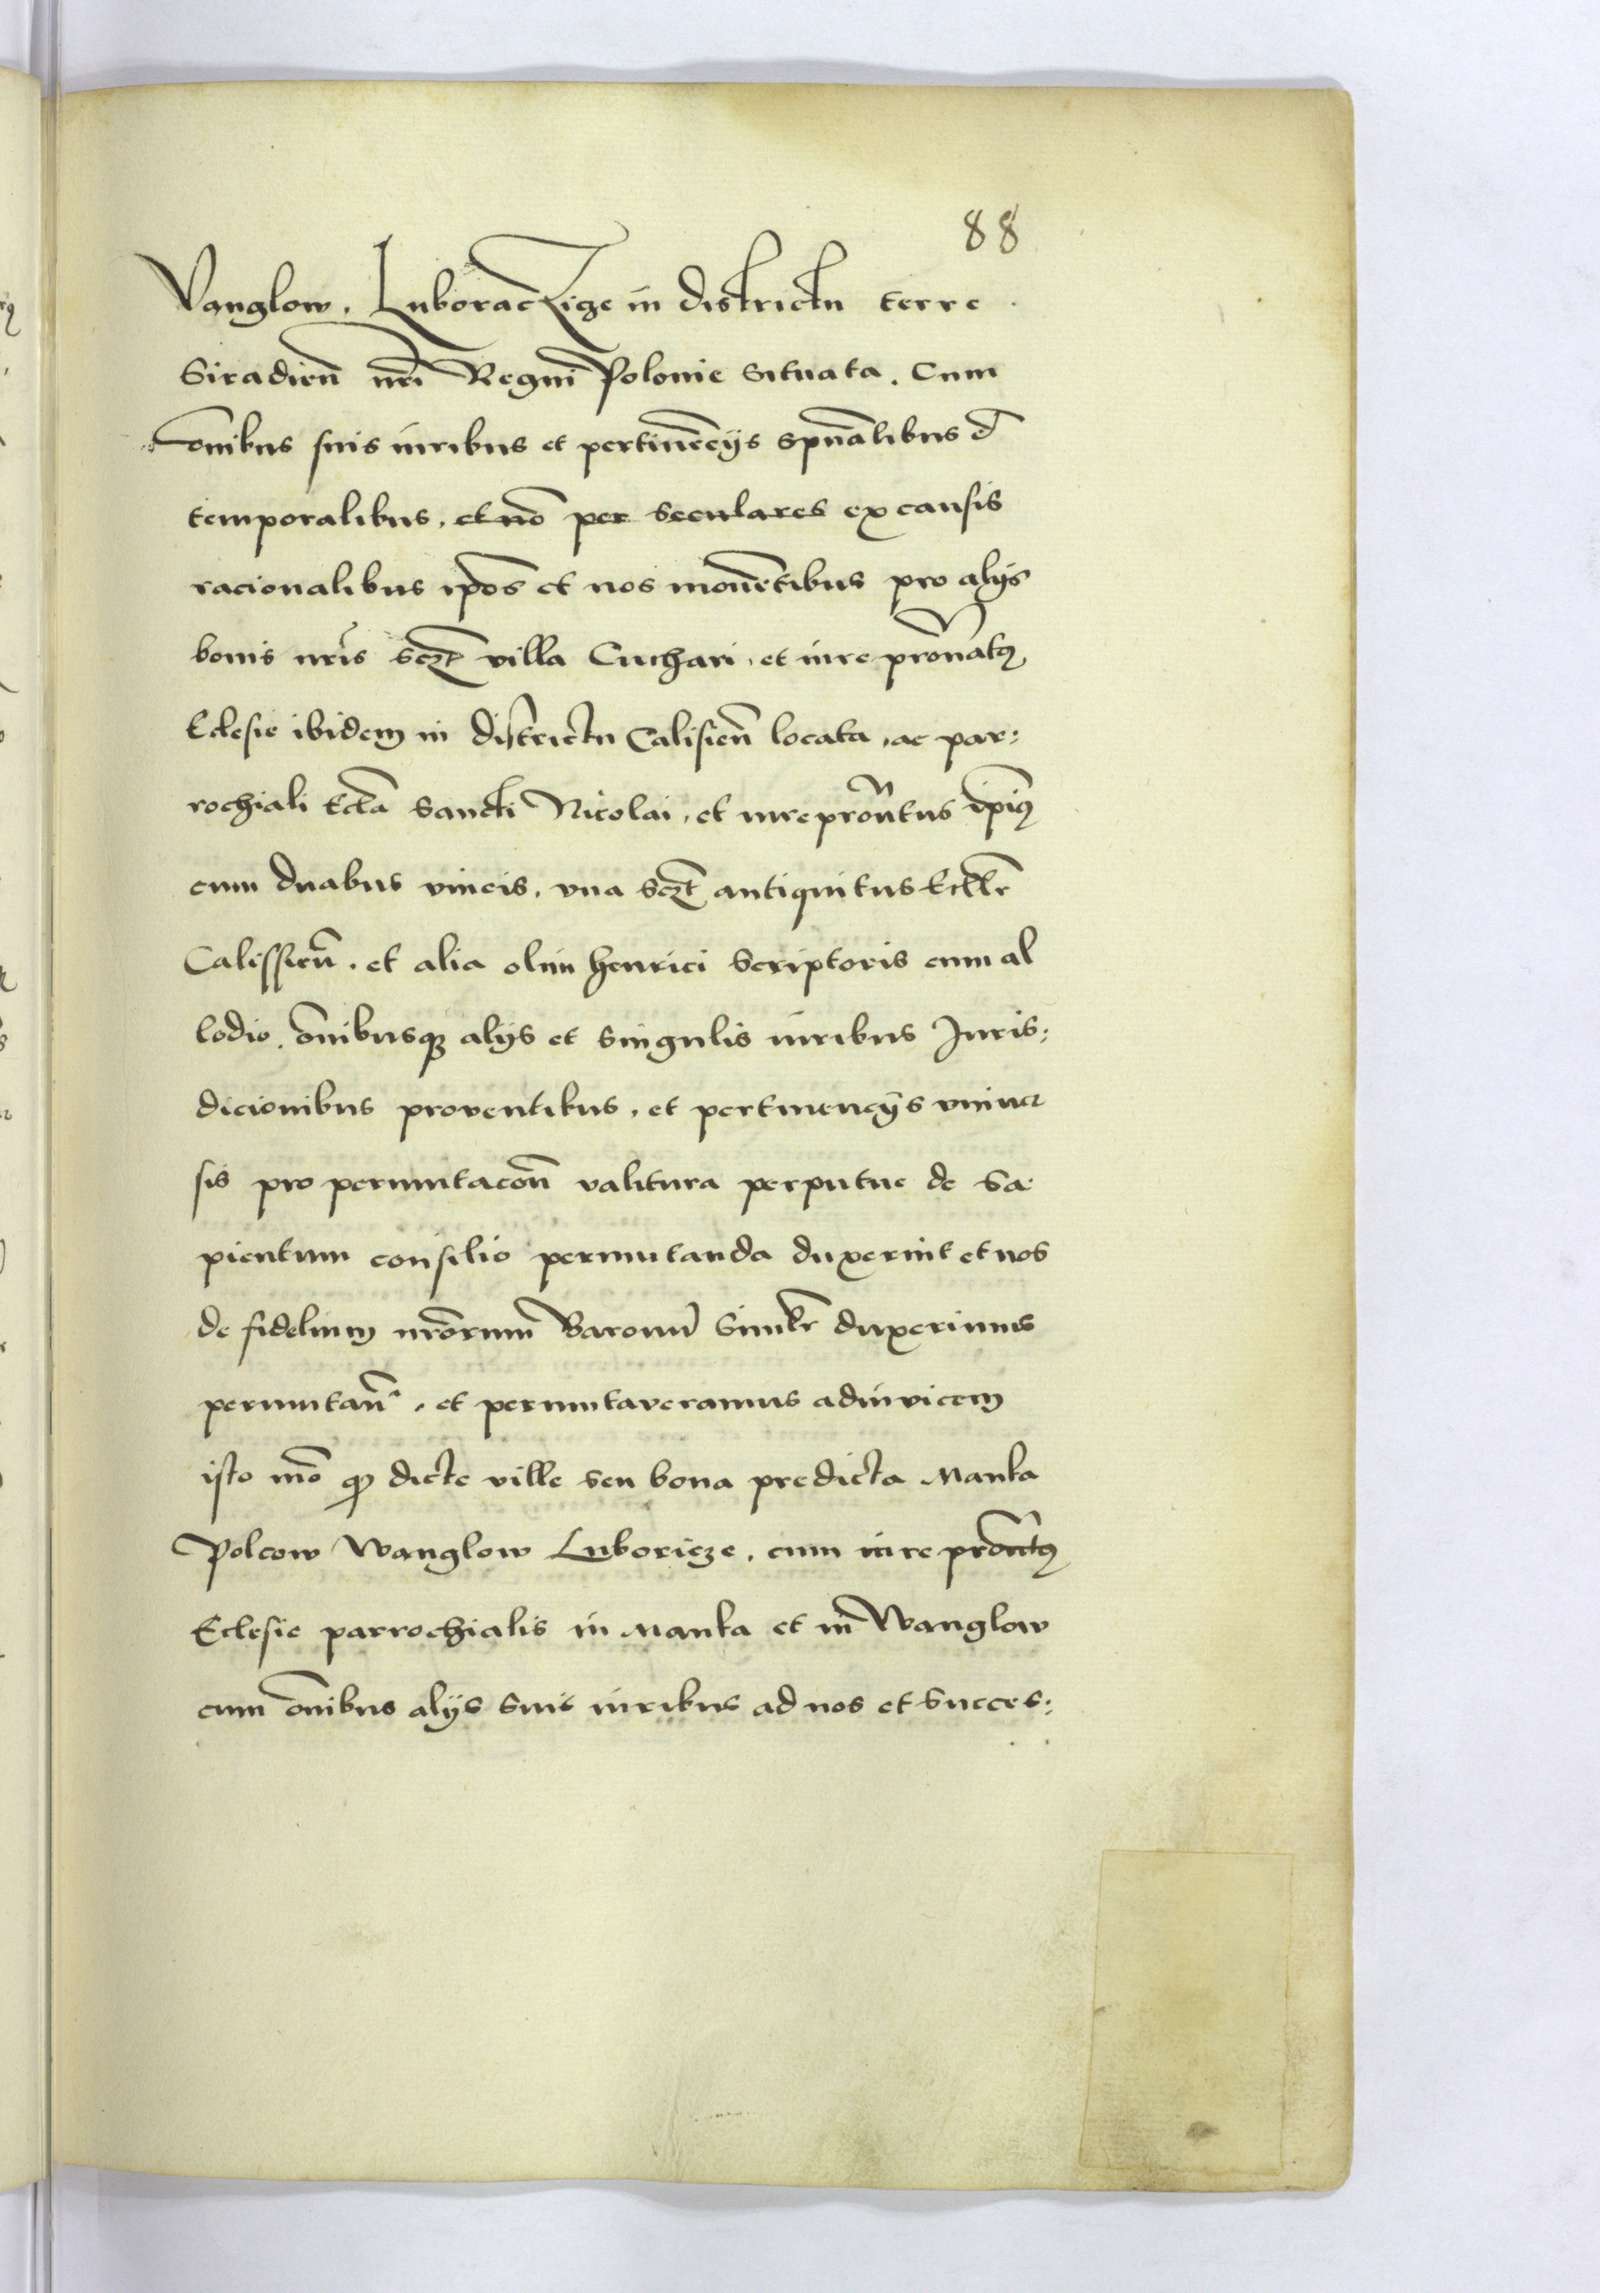 88
Vanglow. Luboraczicze in districtu terre
Siradien̄ nr̄i Regni Polonie situata. Cum
om̄ibus suis iuribus et pertinēcijs spūalibus
temporalibus, et nō per seculares ex causis
racionalibus ip̄os et nos mouētibus pro alijs
bonis nr̄is scz̄ villa Cuchari, et iure pronatꝰ
Ecclesie ibidem in districtu Calisien̄ locata, ac par:
rochiali Eccl̄a Sancti Nicolai, et iure pron̄tus ip̄iꝰ
cum duabus vineis, vna scz̄ antiquitus Eccl̄e
Calissien̄. et alia olim henrici Scriptoris cum al
lodio, om̄ibusqꝫ alijs et singulis iuribus Juris:
dicionibus proventibus, et pertinencijs vniuer
sis pro permutacōn̄ valitura perputue de Sa
pientum consilio permutanda duxerint et nos
de fidelium nr̄orum Baronū simlr̄ duxerimus
permutan̄, et permutaveramus adinvicem
isto mō qꝫ dicte ville seu bona predicta Manka
Polcow Wanglow Luboricze, cum iure pron̄tꝰ
Ecclesie parrochialis in Manka et in Wanglow
cum om̄ibus alijs suis iuribus ad nos et succes: